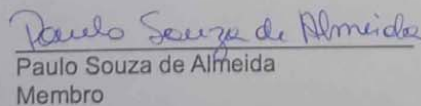 Paulo Souza de Almeida
Paulo Souza de Almeida
Membro